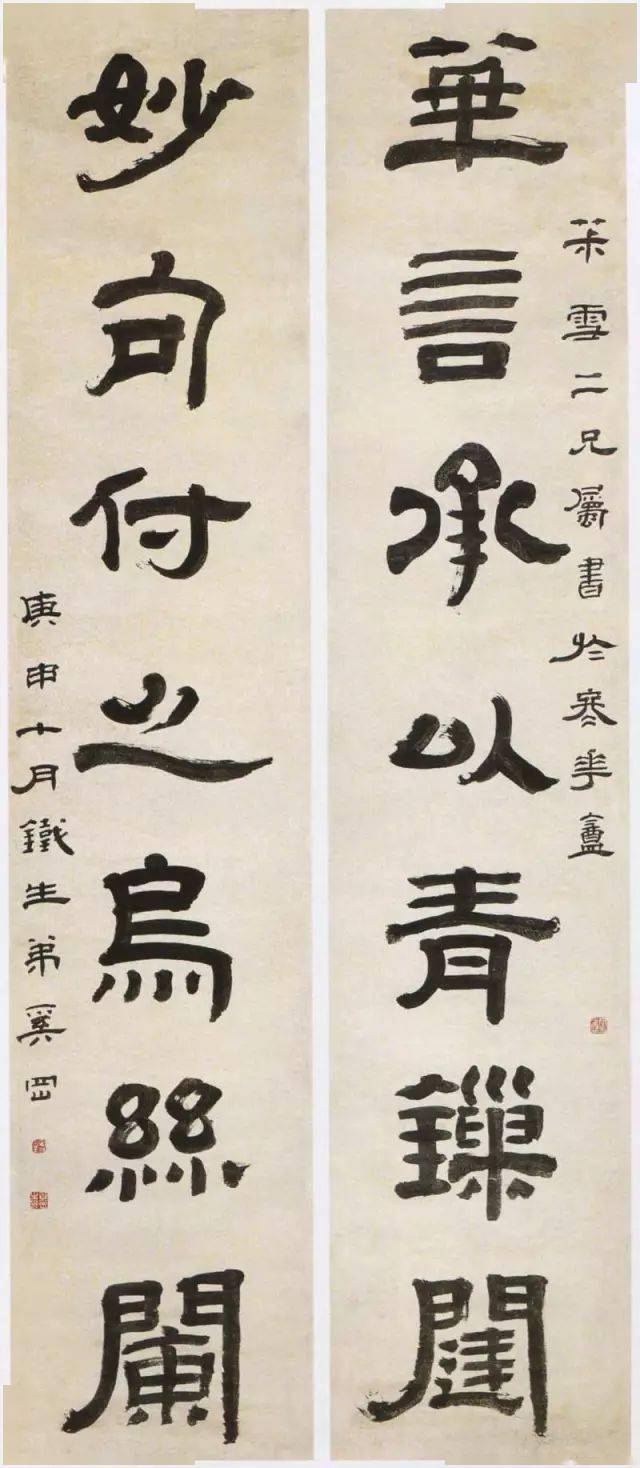 華言承以青鏁闥
茮雪二兄屬書於寒華盦
妙句付之烏絲闌
庚申十月鐵生弟奚岡